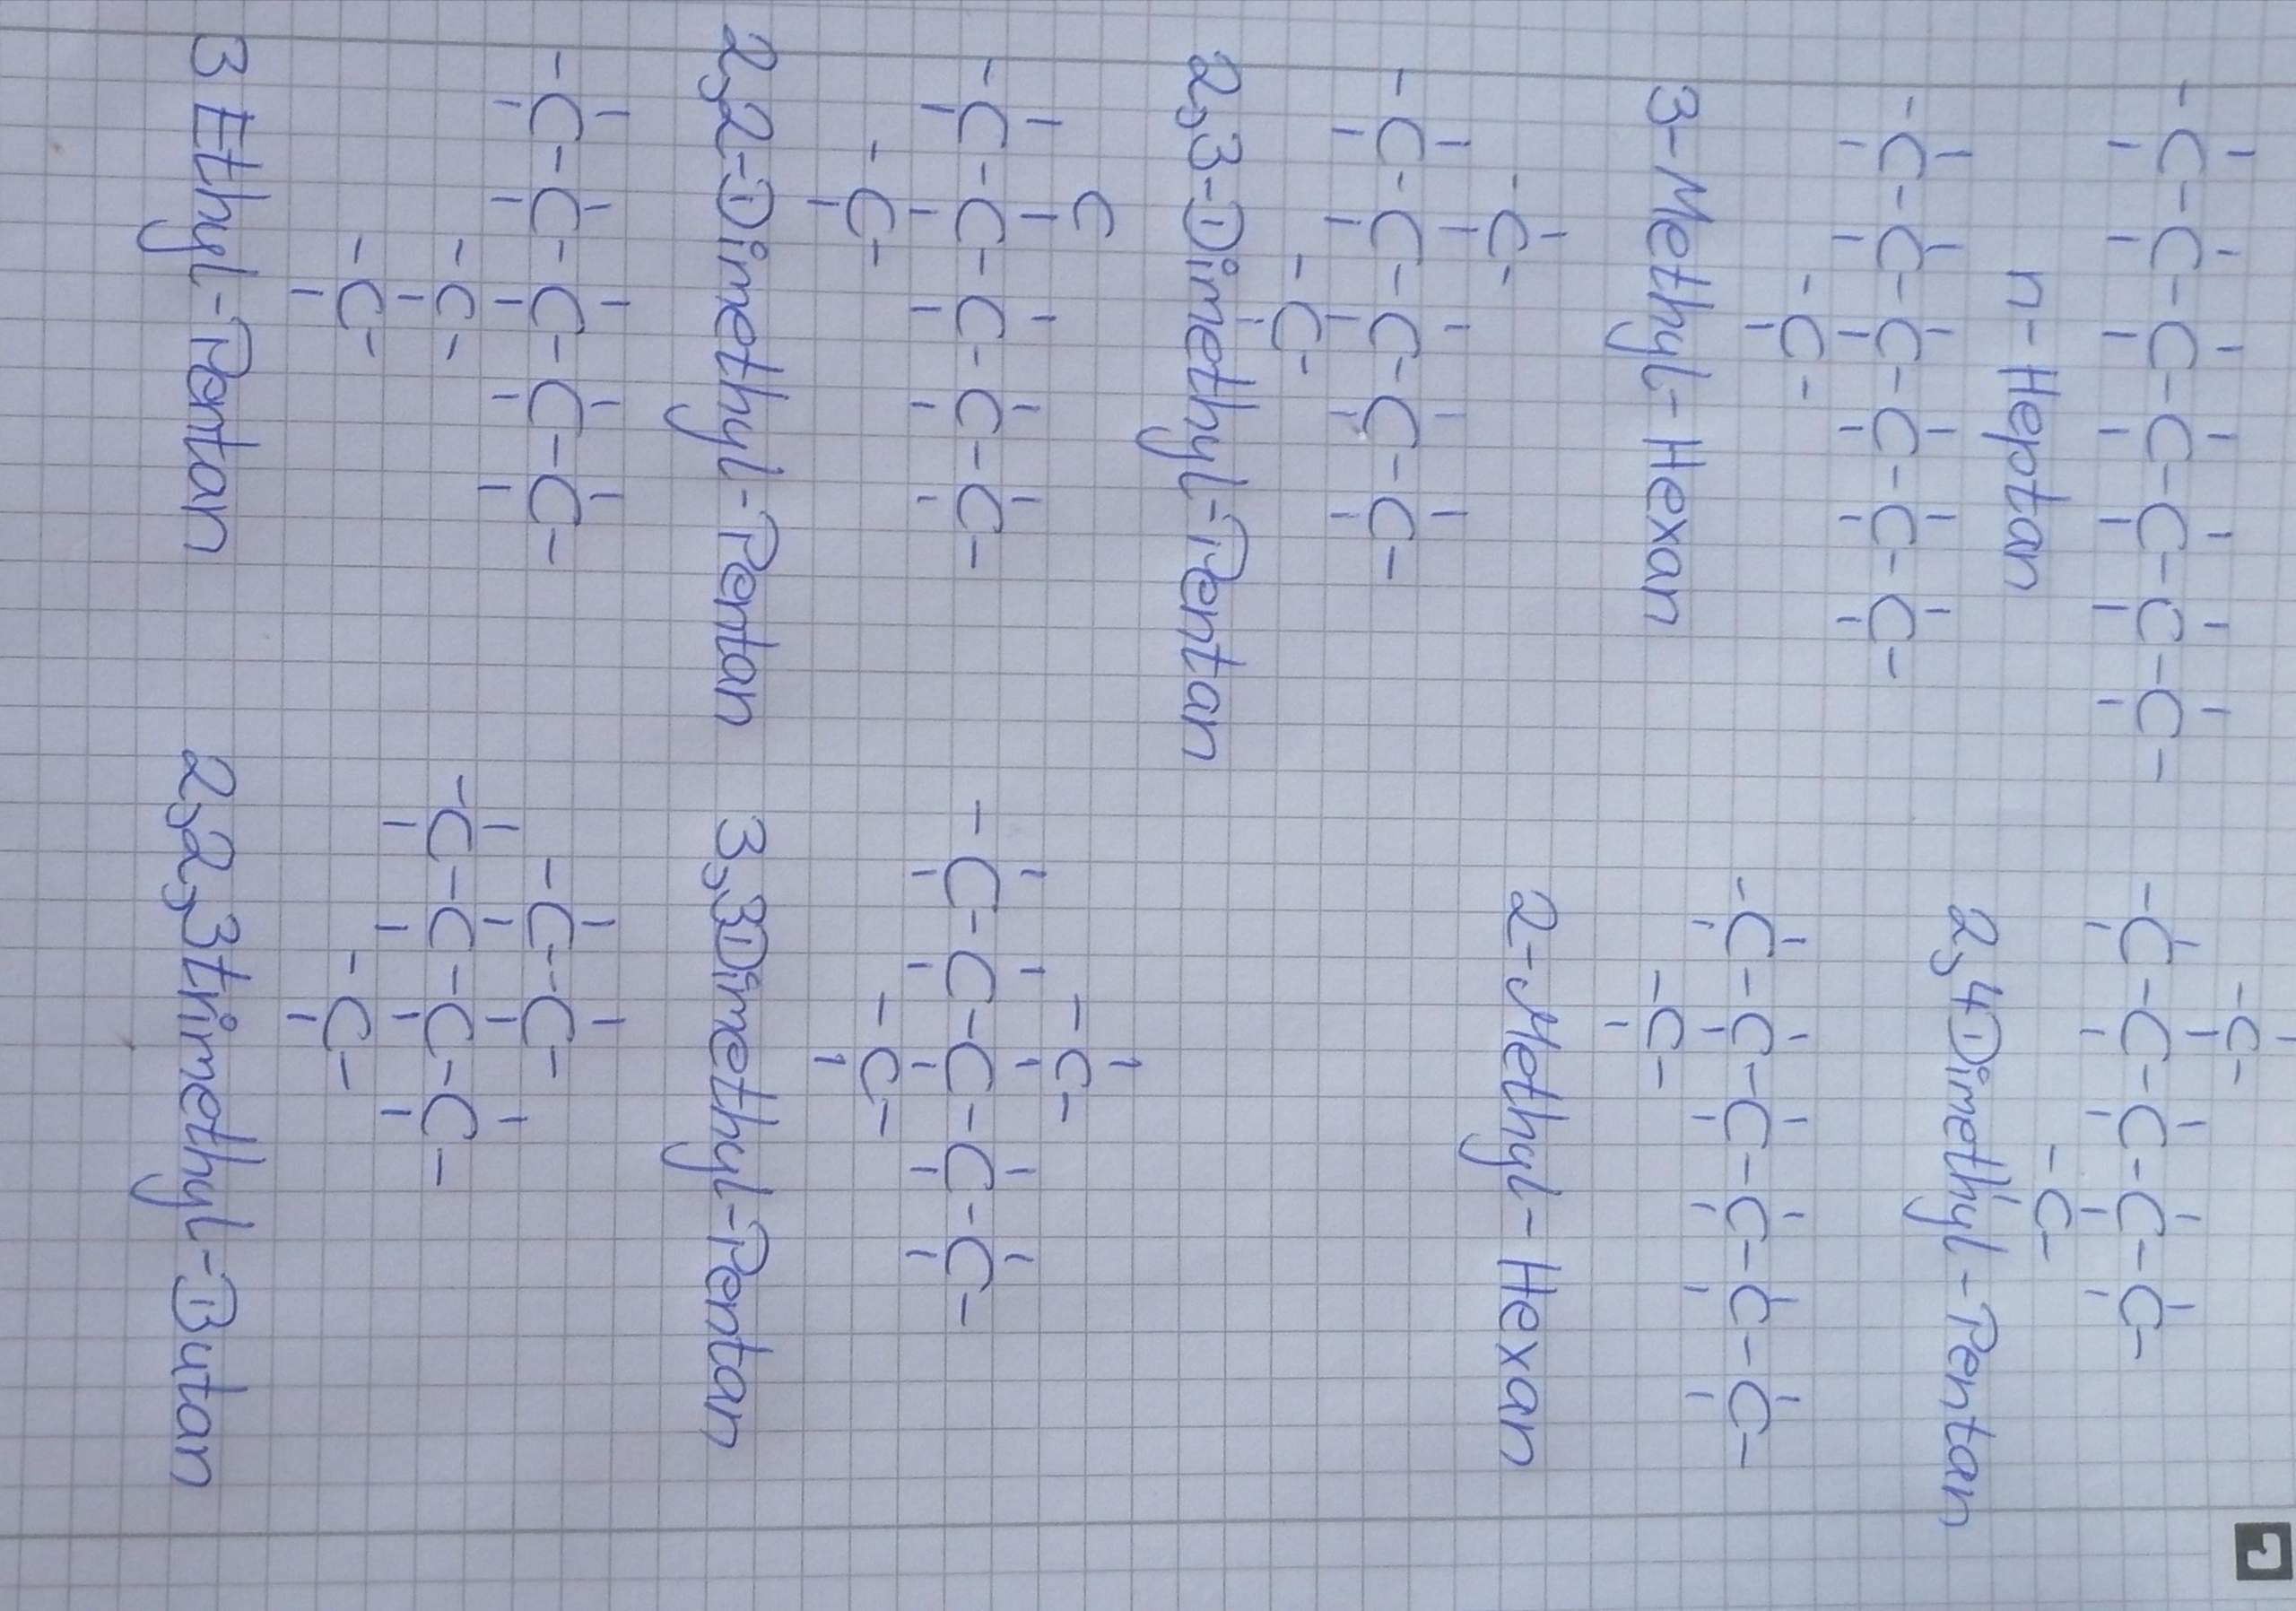 -C-C-C-C-C-C-C-
n-Heptan
-C-C-C-C-C-C-
-C-
3-Methyl-Hexan
-C-
-C-C-C-C-C-
-C-
2,3-Dimethyl-Pentan
C
-C-C-C-C-C-
-C-
2,2-Dimethyl-Pentan
-C-C-C-C-C-
-C-
-C-
3 Ethyl-Pentan
-C-
-C-C-C-C-C-
-C-
2,4Dimethyl-Pentan
-C-C-C-C-C-C-
-C-
2-Methyl-Hexan
-C-
-C-C-C-C-C-
-C-
3,3Dimethyl-Pentan
-C--C-
-C-C-C-C-
-C-
2,2,3trimethyl-Butan